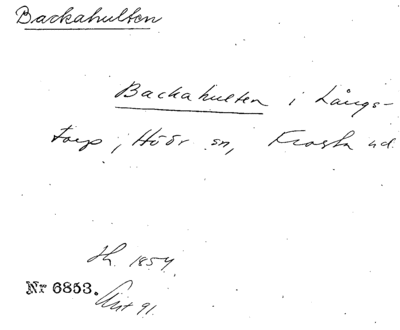 Backahulten
Backahulten i Långs-
torp, Höör sn, Frosta hd.
Jh. 1854.
Nr 6853. Akt 91.